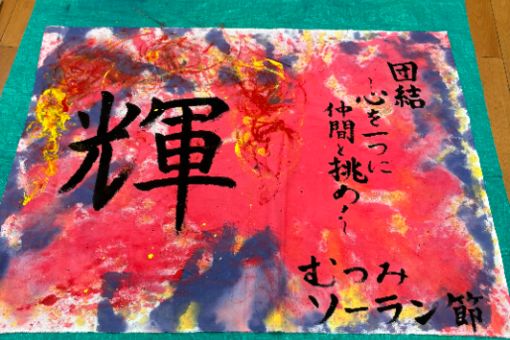 輝
団結
~心を一つに
仲間と挑め!~
むつみ
ソーラン節